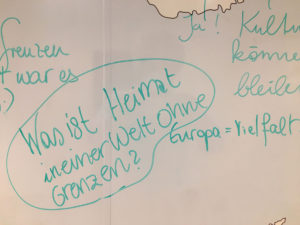 Grenzen
war es
Was ist Heimat
in einer Welt ohne
Grenzen?
Ja! Kultu
könne
bleibe
Europa = Vielfalt